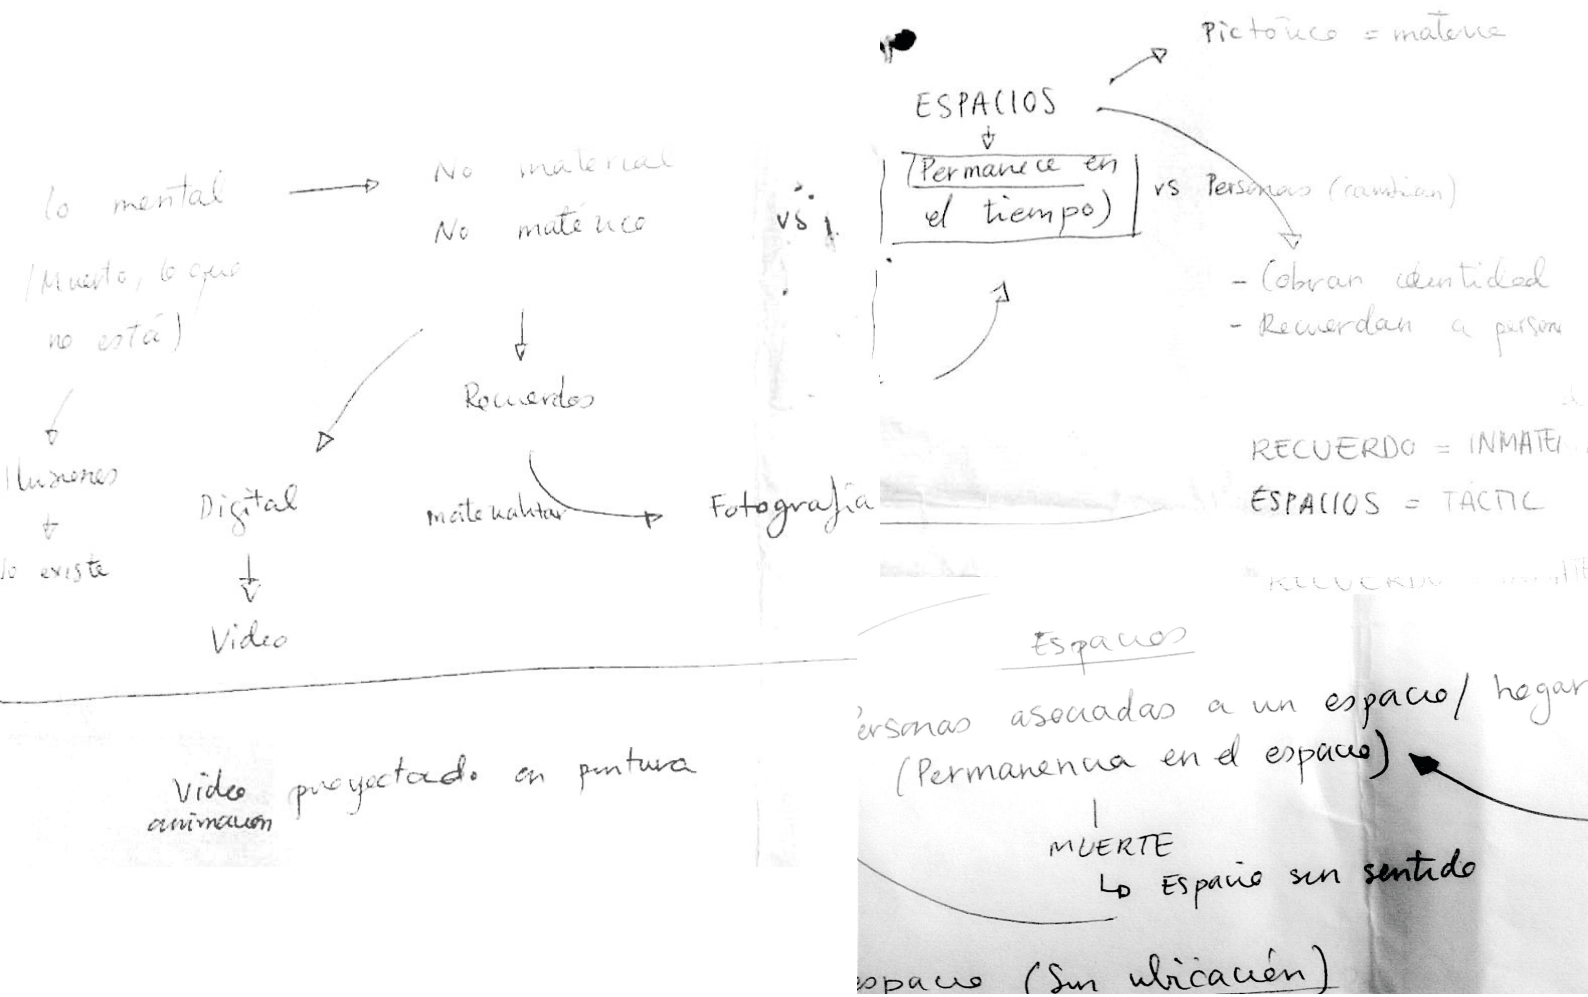 lo mental
No material
No matérico
(Muerto, lo que
no está)
Recuerdos
Ilusiones
no existe
Digital
materializar
Fotografía
Video
Video proyectado en pintura
animación
vs
Pictórico = materia
ESPACIOS
(Permanece en
el tiempo)
vs Personas (cambian)
- Cobran identidad
- Recuerdan a person
RECUERDO = INMATE
ESPACIOS = TÁCTIL
Espacios
Personas asociadas a un espacio/ hogar
(Permanencia en el espacio)
MUERTE
Espacio sin sentido
espacio (Sin ubicación)